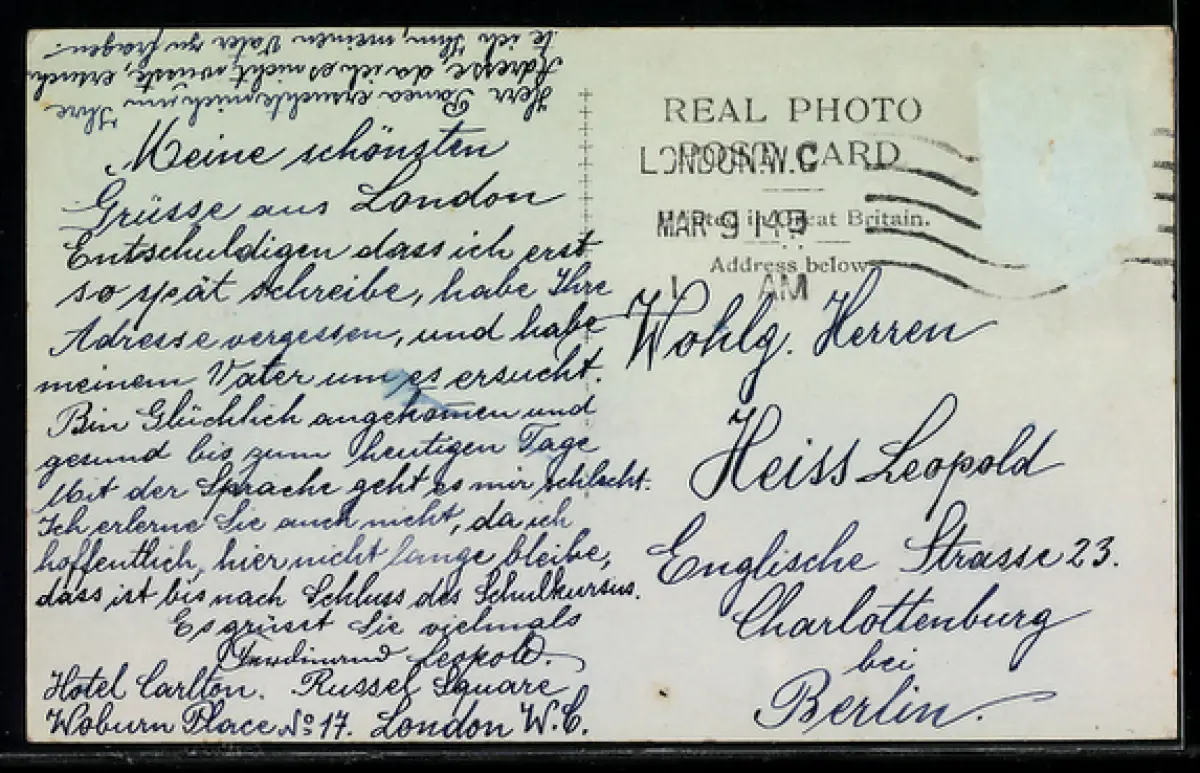 Meine schönsten
Grüsse aus London
Entschuldigen dass ich erst
so spät schreibe, habe Ihre
Adresse vergessen, und habe
meinem Vater um es ersucht.
Bin Glücklich angekommen und
gesund bis zum heutigen Tage
Mit der Sprache geht es mir schlecht.
Ich erlerne Sie auch nicht, da ich
hoffentlich, hier nicht lange bleibe,
dass ist bis nach Schluss des Schulkursus.
Es grüsst Sie vielmals
Ferdinand Leopold.
Hotel Carlton. Russel Square
Woburn Place No 17. London W.C.
Herr ersuchte mich um Ihre
Adresse, da ich es nicht wusste, ersuch
te ich Ihm, meinen Vater zu fragen.
REAL PHOTO
POST CARD
LONDON.W.C
Printed in Great Britain.
MAR 9 14
Address below
1 AM
Wohlg. Herren
Heiss Leopold
Englische Strasse 23.
Charlottenburg
bei
Berlin.